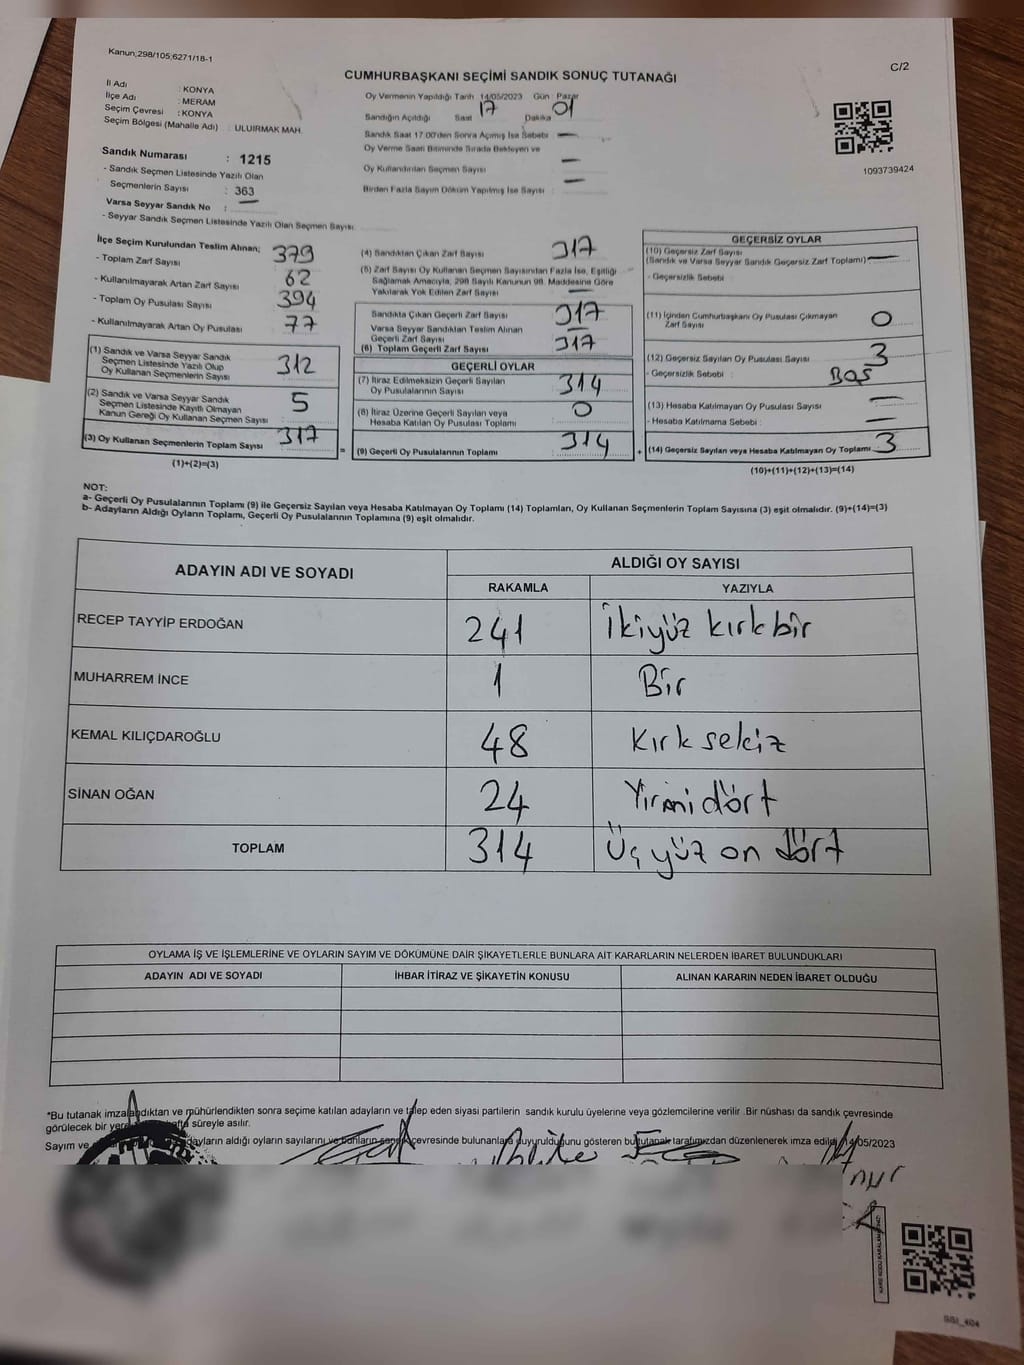 Kanun;298/105;6271/18-1
C/2
CUMHURBAŞKANI SEÇİMİ SANDIK SONUÇ TUTANAĞI
İl Adı : KONYA
İlçe Adı : MERAM
Seçim Çevresi : KONYA
Seçim Bölgesi (Mahalle Adı) : ULUIRMAK MAH.
Oy Vermenin Yapıldığı Tarih 14/05/2023 Gün : Pazar
Sandığın Açıldığı Saat 17 Dakika 01
Sandık Saat 17.00'den Sonra Açılmış İse Sebebi —
Oy Verme Saati Bitiminde Sırada Bekleyen ve
Oy Kullandırılan Seçmen Sayısı —
Birden Fazla Sayım Döküm Yapılmış İse Sayısı —
1093739424
Sandık Numarası : 1215
- Sandık Seçmen Listesinde Yazılı Olan
Seçmenlerin Sayısı : 363
Varsa Seyyar Sandık No : —
- Seyyar Sandık Seçmen Listesinde Yazılı Olan Seçmen Sayısı:
İlçe Seçim Kurulundan Teslim Alınan;
- Toplam Zarf Sayısı 379
- Kullanılmayarak Artan Zarf Sayısı 62
- Toplam Oy Pusulası Sayısı 394
- Kullanılmayarak Artan Oy Pusulası 77
(1) Sandık ve Varsa Seyyar Sandık
Seçmen Listesinde Yazılı Olup
Oy Kullanan Seçmenlerin Sayısı 312
(2) Sandık ve Varsa Seyyar Sandık
Seçmen Listesinde Kayıtlı Olmayan
Kanun Gereği Oy Kullanan Seçmen Sayısı 5
(3) Oy Kullanan Seçmenlerin Toplam Sayısı 317
(1)+(2)=(3)
(4) Sandıktan Çıkan Zarf Sayısı 317
(5) Zarf Sayısı Oy Kullanan Seçmen Sayısından Fazla İse, Eşitliği
Sağlamak Amacıyla, 298 Sayılı Kanunun 98. Maddesine Göre
Yakılarak Yok Edilen Zarf Sayısı —
Sandıkta Çıkan Geçerli Zarf Sayısı 317
Varsa Seyyar Sandıktan Teslim Alınan
Geçerli Zarf Sayısı —
(6) Toplam Geçerli Zarf Sayısı 317
GEÇERLİ OYLAR
(7) İtiraz Edilmeksizin Geçerli Sayılan
Oy Pusulalarının Sayısı 314
(8) İtiraz Üzerine Geçerli Sayılan veya
Hesaba Katılan Oy Pusulası Toplamı 0
= (9) Geçerli Oy Pusulalarının Toplamı 314 +
GEÇERSİZ OYLAR
(10) Geçersiz Zarf Sayısı
(Sandık ve Varsa Seyyar Sandık Geçersiz Zarf Toplamı) —
- Geçersizlik Sebebi :
(11) İçinden Cumhurbaşkanı Oy Pusulası Çıkmayan
Zarf Sayısı 0
(12) Geçersiz Sayılan Oy Pusulası Sayısı 3
- Geçersizlik Sebebi : Boş
(13) Hesaba Katılmayan Oy Pusulası Sayısı —
- Hesaba Katılmama Sebebi : —
(14) Geçersiz Sayılan veya Hesaba Katılmayan Oy Toplamı 3
(10)+(11)+(12)+(13)=(14)
NOT:
a- Geçerli Oy Pusulalarının Toplamı (9) ile Geçersiz Sayılan veya Hesaba Katılmayan Oy Toplamı (14) Toplamları, Oy Kullanan Seçmenlerin Toplam Sayısına (3) eşit olmalıdır. (9)+(14)=(3)
b- Adayların Aldığı Oyların Toplamı, Geçerli Oy Pusulalarının Toplamına (9) eşit olmalıdır.
ADAYIN ADI VE SOYADI
ALDIĞI OY SAYISI
RAKAMLA YAZIYLA
RECEP TAYYİP ERDOĞAN 241 İkiyüz kırk bir
MUHARREM İNCE 1 Bir
KEMAL KILIÇDAROĞLU 48 Kırk sekiz
SİNAN OĞAN 24 Yirmi dört
TOPLAM 314 Üç yüz on dört
OYLAMA İŞ VE İŞLEMLERİNE VE OYLARIN SAYIM VE DÖKÜMÜNE DAİR ŞİKAYETLERLE BUNLARA AİT KARARLARIN NELERDEN İBARET BULUNDUKLARI
ADAYIN ADI VE SOYADI İHBAR İTİRAZ VE ŞİKAYETİN KONUSU ALINAN KARARIN NEDEN İBARET OLDUĞU
*Bu tutanak imzalandıktan ve mühürlendikten sonra seçime katılan adayların ve talep eden siyasi partilerin sandık kurulu üyelerine veya gözlemcilerine verilir .Bir nüshası da sandık çevresinde
görülecek bir yere hafta süreyle asılır.
Sayım ve adayların aldığı oyların sayılarını ve bunların sandık çevresinde bulunanlara duyurulduğunu gösteren bu tutanak tarafımızdan düzenlenerek imza edildi. 14/05/2023